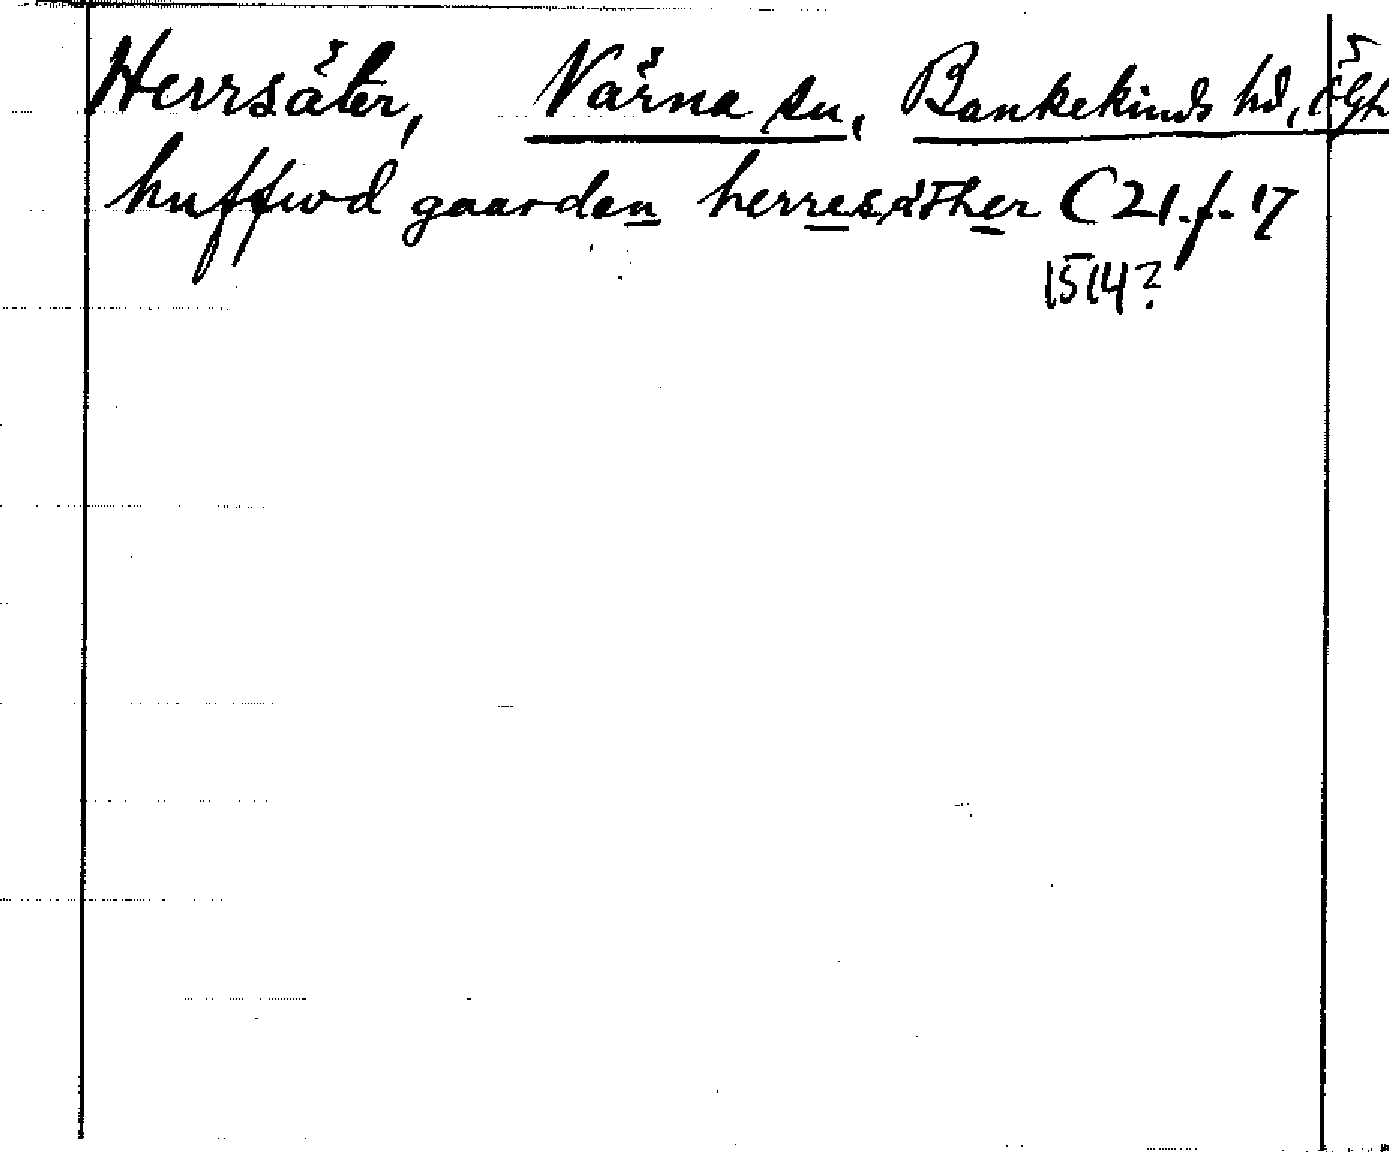 Herrsäter, Värna sn, Bankekinds hd, Ögl
huffwd gaarden herresäther C 21 f. 17
1514?